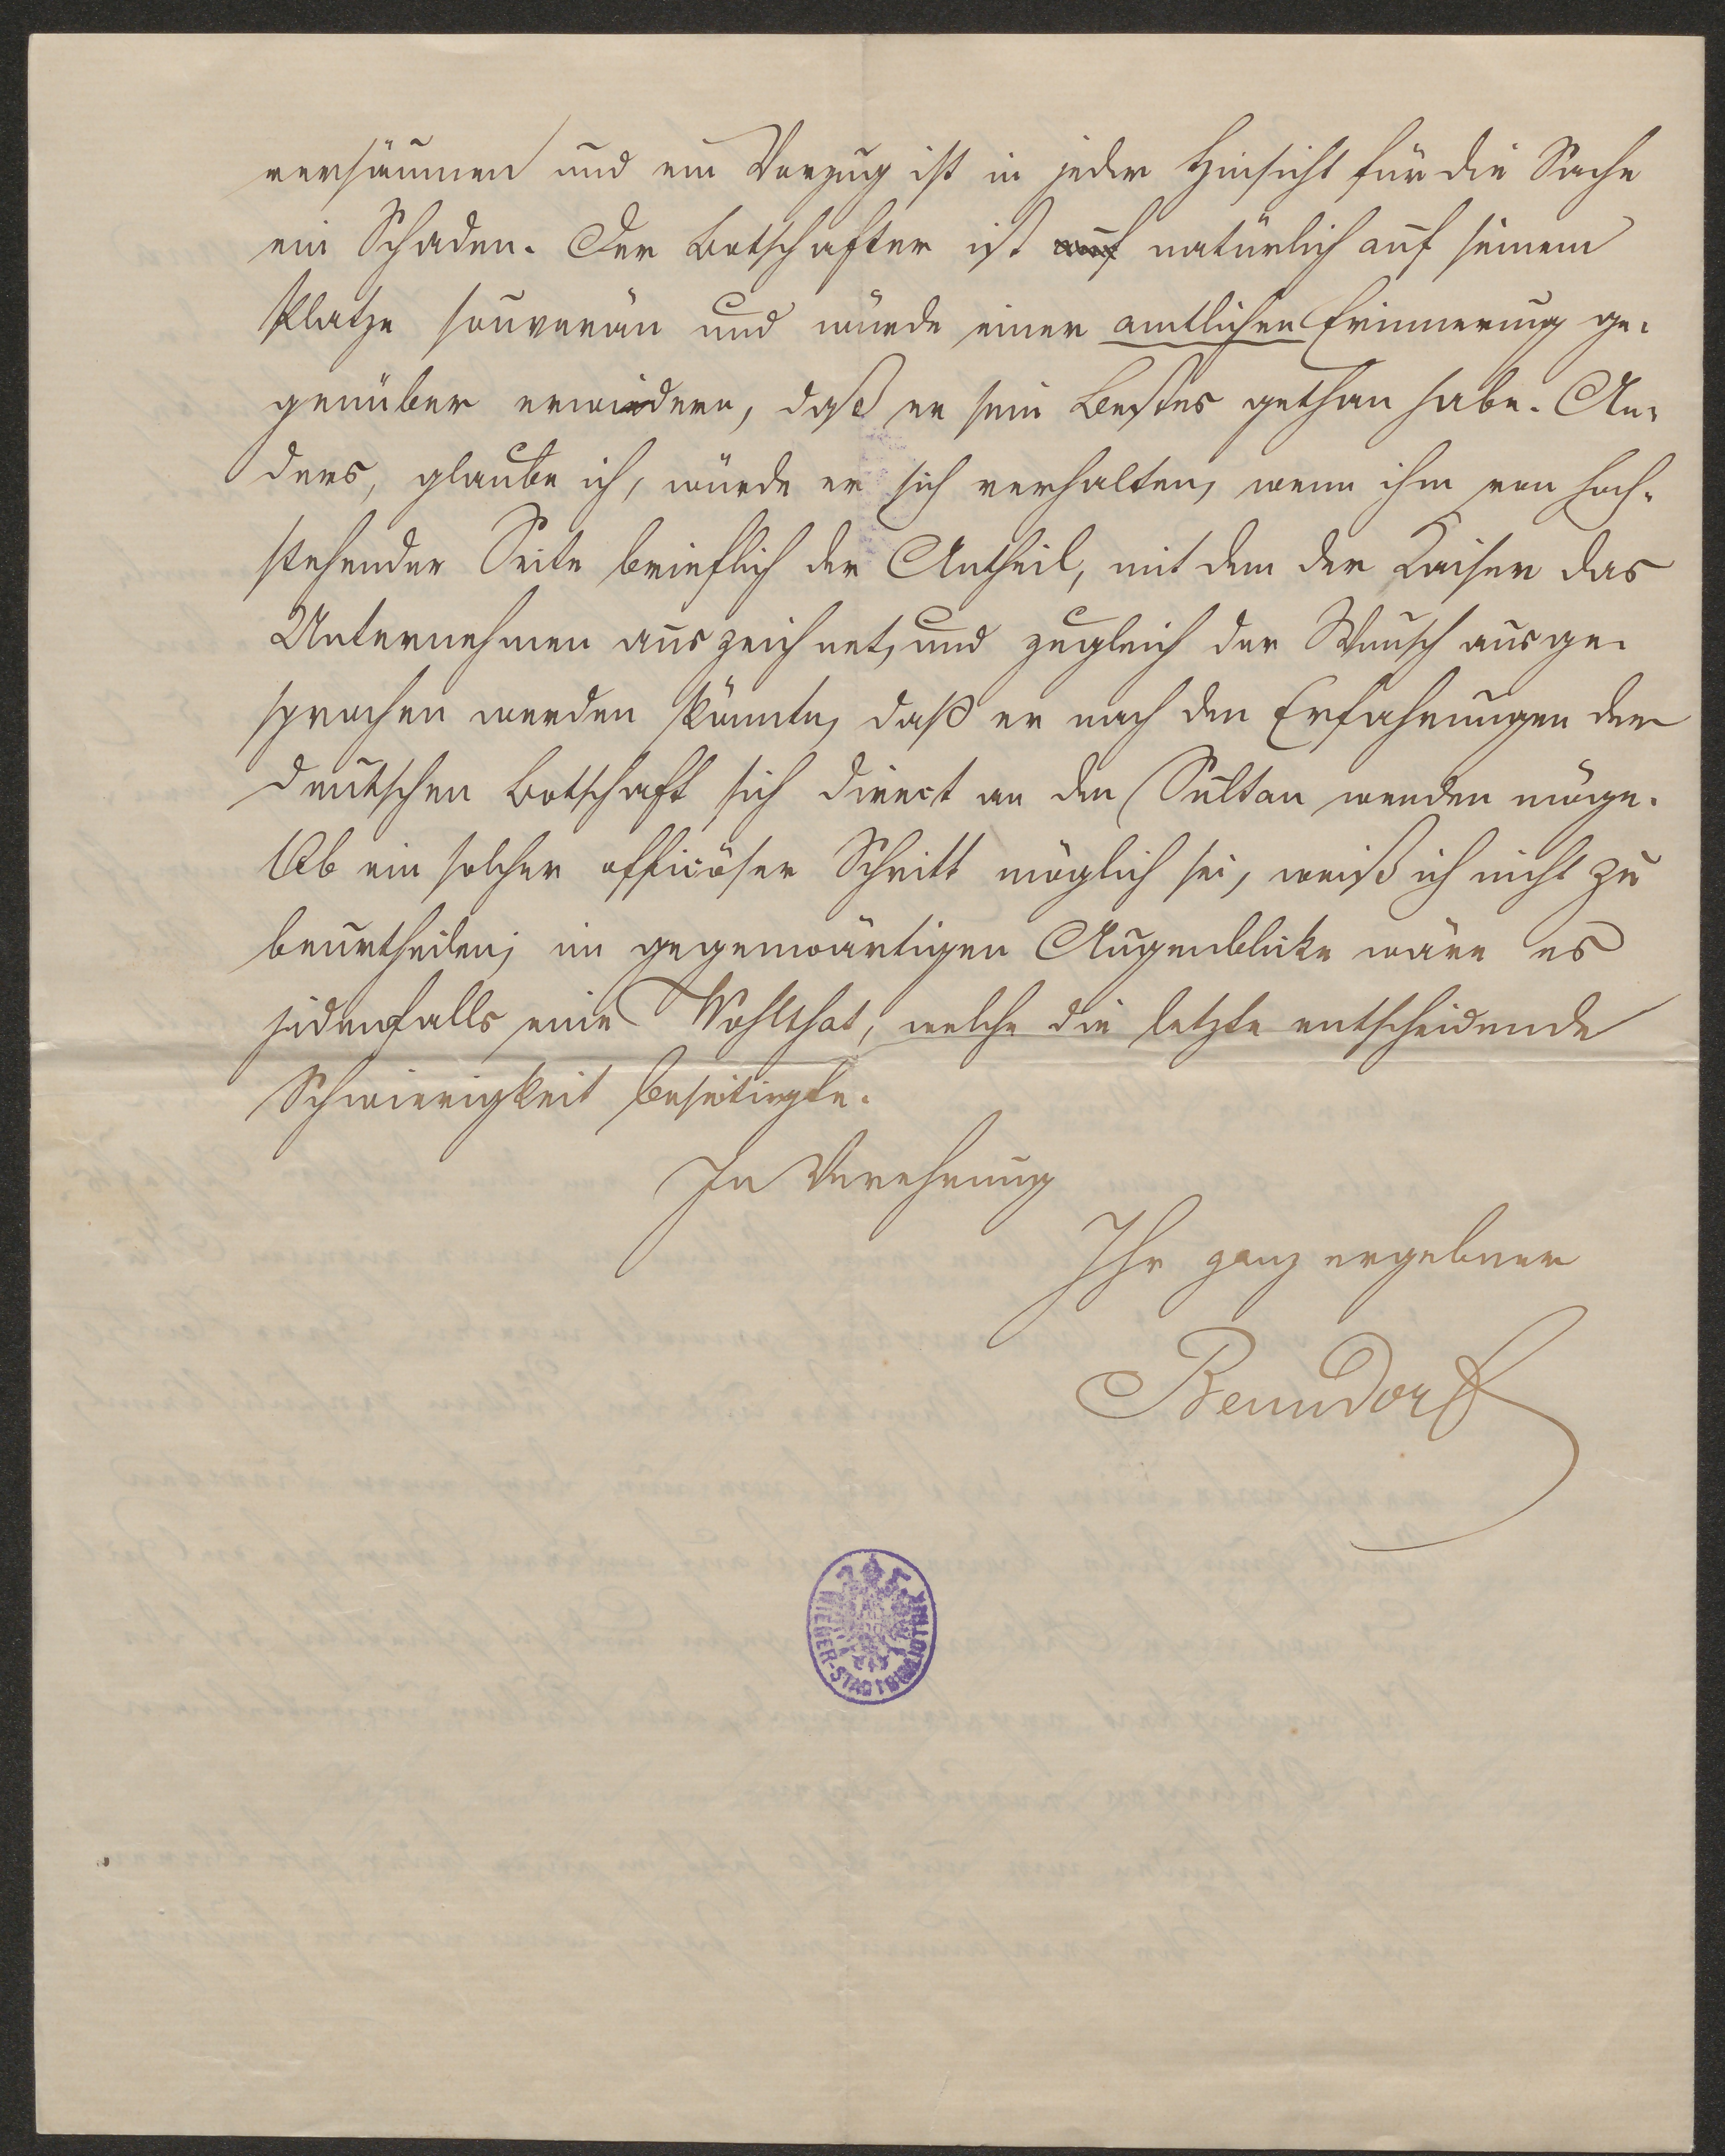 versäumen und ein Verzug ist in jeder Hinsicht für die Sache
ein Schaden. Der Botschafter ist auf natürlich auf seinem
Platze souverän und würde einer amtlichen Erinnerung ge-
genüber erwiedern, daß er sein Bestes gethan habe. An-
ders, glaube ich, würde er sich verhalten, wenn ihm von hoch-
stehender Seite brieflich der Antheil, mit dem der Kaiser das
Unternehmen auszeichnet, und zugleich der Wunsch ausge-
sprochen werden könnte, daß er nach den Erfahrungen der
deutschen Botschaft sich direct an den Sultan wenden möge.
Ob ein solcher officiöser Schritt möglich sei, weiß ich nicht zu
beurtheilen; im gegenwärtigen Augenblicke wäre es
jedenfalls eine Wohlthat, welche die letzte entscheidende
Schwierigkeit beseitigte.
In Verehrung
Ihr ganz ergebner
Benndorf
WIENER-STADTBIBLIOTHEK